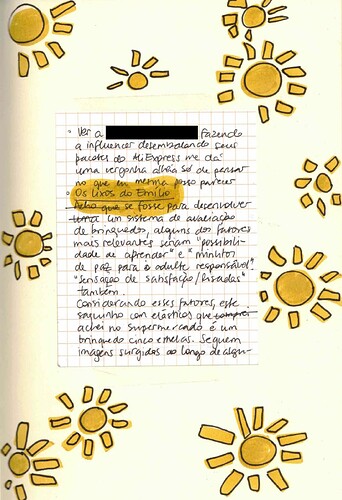 ° Ver a fazendo
a influencer desembalando seus
pacotes do AliExpress me dá
uma vergonha alheia só de pensar
no que eu mesma posso parecer
° Os lixos do Emílio
Acho que se fosse para desenvolver
uma um sistema de avaliação
de brinquedo, alguns dos fatores
mais relevantes seriam "possibili-
dade de aprender" e "minutos
de paz para o adulto responsável"
"sensação de satisfação/risadas"
também.
Considerando esses fatores, este
saquinho com elásticos que comprei
achei no supermercado é um
brinquedo cinco estrelas. Seguem
imagens surgidas ao longo de algu-